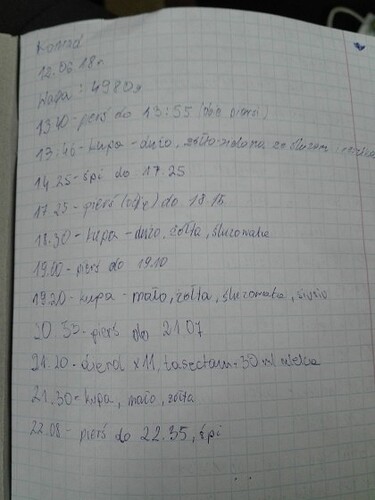 Konrad
12.06.18r.
Waga: 4980g
13.40 - pierś do 13:55 (obie piersi)
13.46 - kupa - dużo, żółto-zielona ze śluzem
14.25 - śpi do 17.25
17.25 - pierś do 18.15
18.30 - kupa - dużo, żółta, śluzowata
19.00 - pierś do 19.10
19.20 - kupa - mało, żółta, śluzowata, siusiu
20.55 - pierś do 21.07
21.20 - x 11, 30 ml mleka
21.30 - kupa, mało, żółta
22.08 - pierś do 22.35, śpi